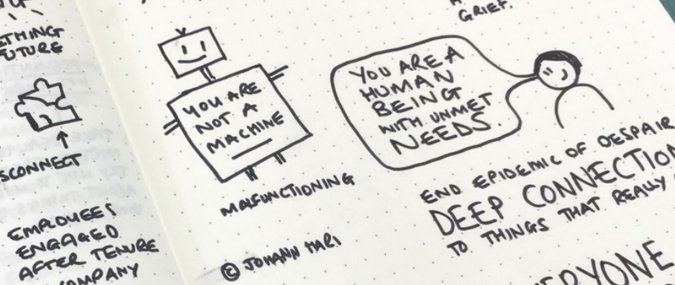 FUTURE
SCONNECT
EMPLOYEES
ENGAGED
AFTER TENURE
COMPANY
YOU ARE
NOT A
MACHINE
MALFUNCTIONING
© JOHANN HARI
GRIEF.
YOU ARE A
HUMAN
BEING
WITH UNMET
NEEDS.
END EPIDEMIC OF DESPAIR
DEEP CONNECTION
TO THINGS THAT REALLY